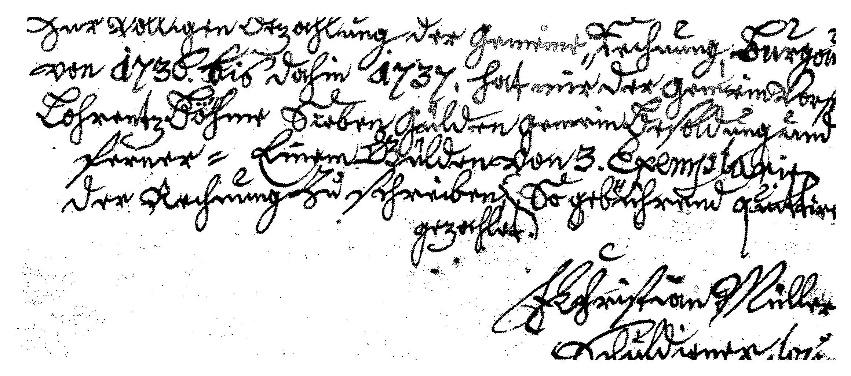 Zur völligen Bezahlung der Gemeine Rechnung, Burgau
von 1736. bis dahin 1737. hat mir der Gemein Vorst
Lohrentz Böhme Sieben Gülden gemein Besoldung und
ferner = Einem Gülden von 3. Exemplarien
der Rechnung zu schreiben, So gebührend quittire
gezahlet.
Christian Müller
Schuldiener